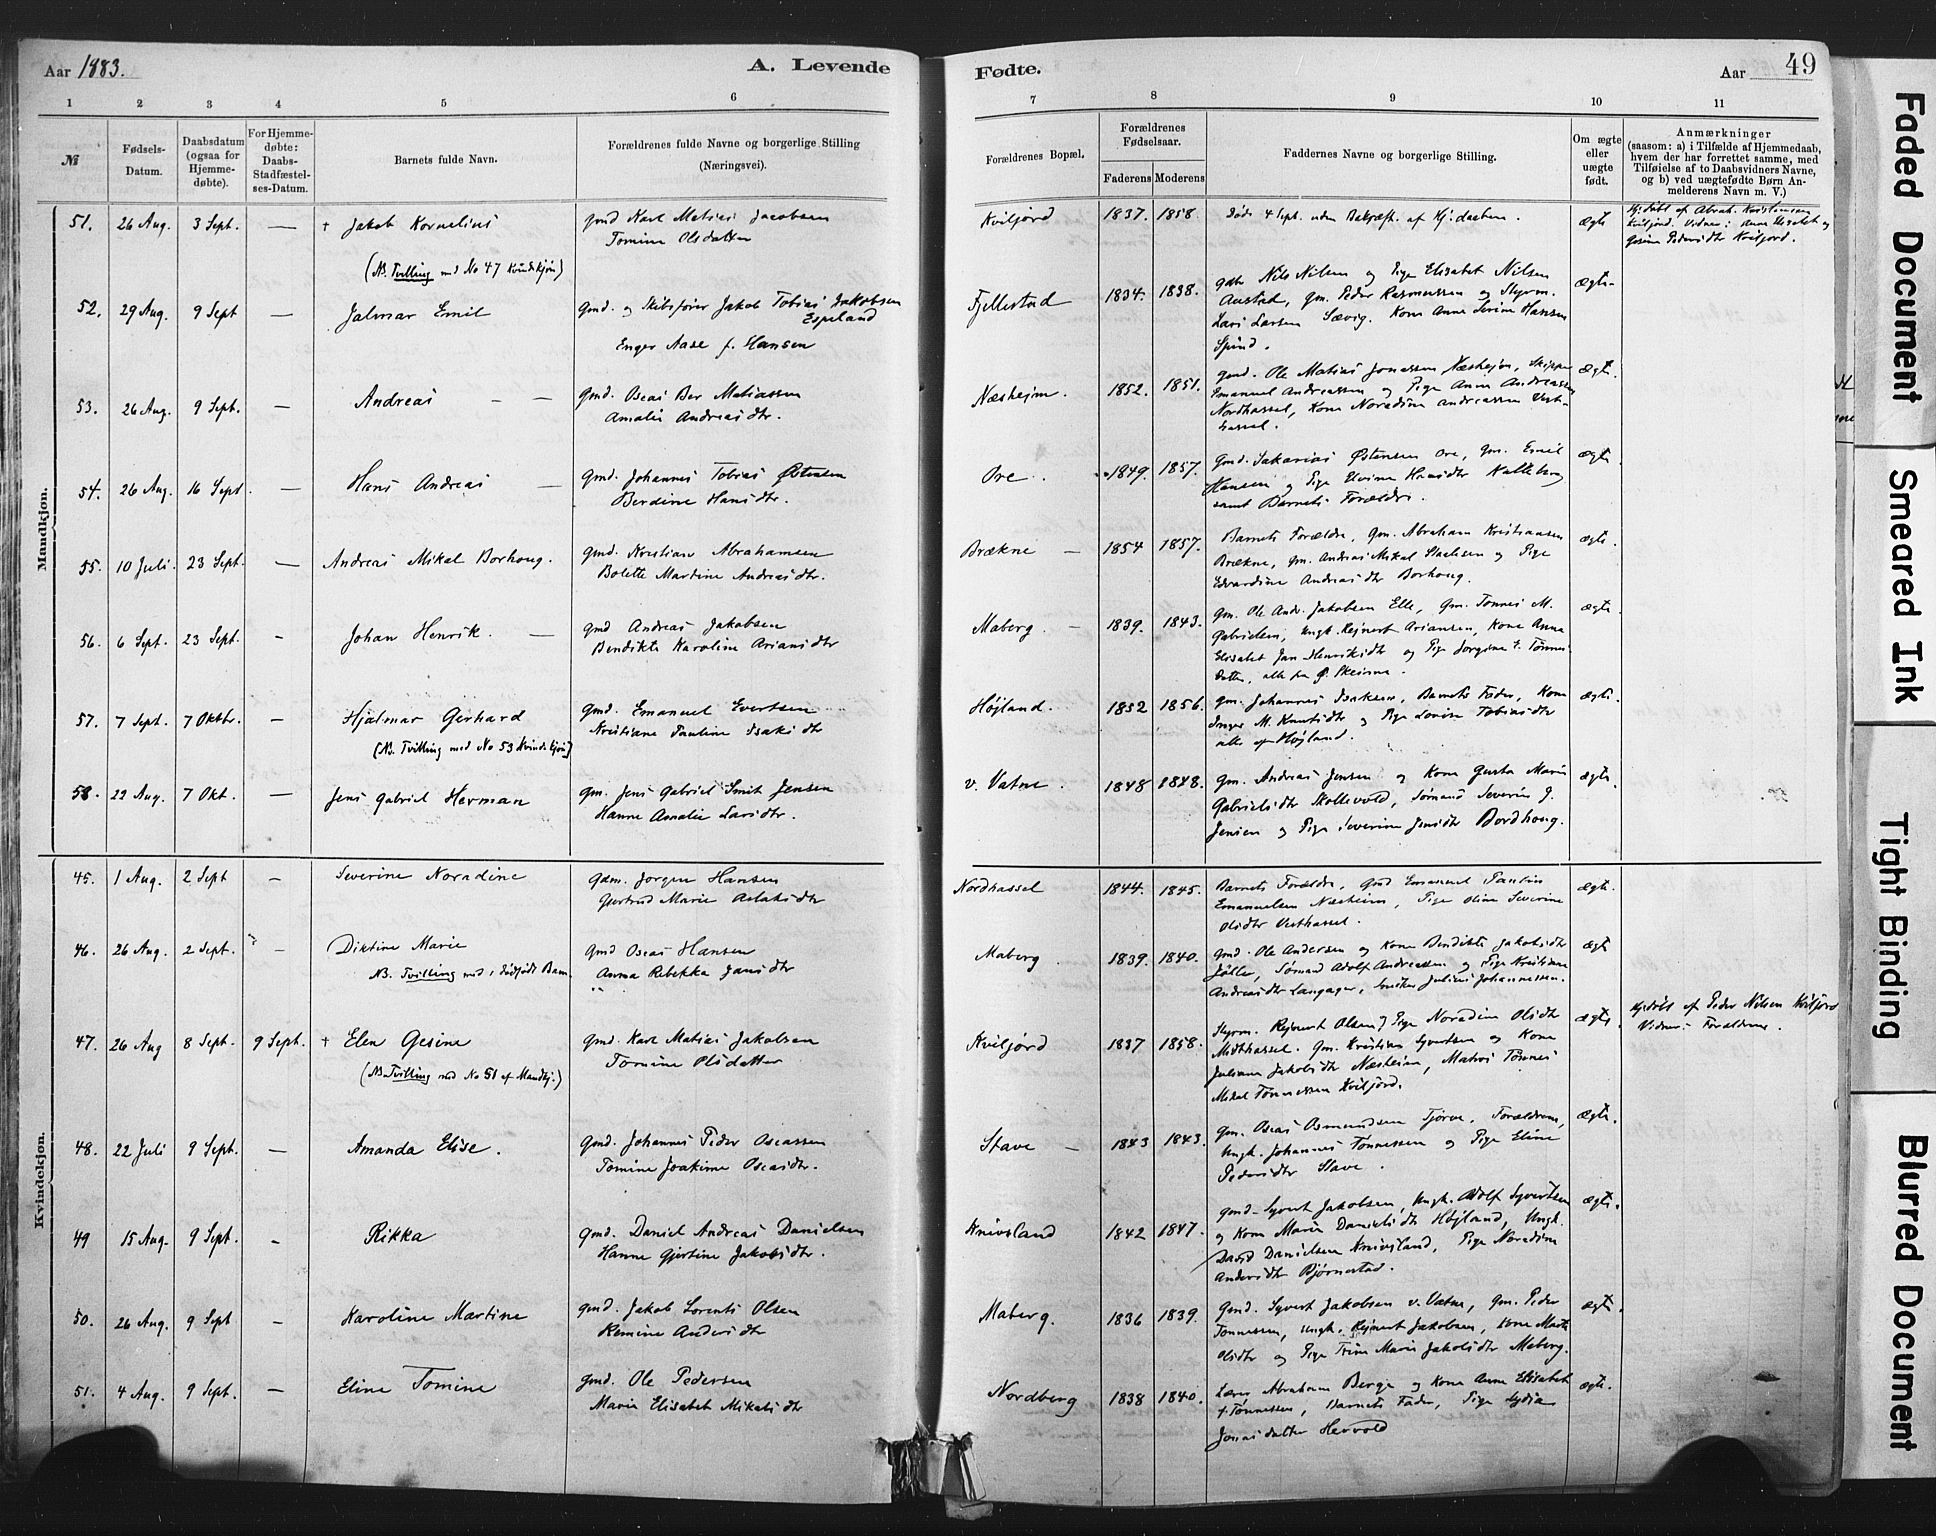 Aar 1883.
A. Levende
Fødte.
Aar
49
1 2 3 4 5 6 7 8 9 10 11
№
Fødsels-
Datum.
Daabsdatum
(ogsaa for
Hjemme-
døbte).
For Hjemme-
døbte:
Daabs-
Stadfæstel-
ses-Datum.
Barnets fulde Navn.
Forældrenes fulde Navne og borgerlige Stilling
(Næringsvei).
Forældrenes Bopæl.
Forældrenes
Fødselsaar.
Faderens Moderens
Faddernes Navne og borgerlige Stilling.
Om ægte
eller
uægte
født.
Anmærkninger
(saasom: a) i Tilfælde af Hjemmedaab,
hvem der har forrettet samme, med
Tilføielse af to Daabsvidners Navne,
og b) ved uægtefødte Børn An-
melderens Navn m. V.)
Mandkjøn.
51. 26 Aug. 3 Sept. — † Jakob Kornelius
(NB. Tvilling med No 47 Kvindekjøn)
gmd Karl Matias Jacobsen
Tomine Olsdatter
Kviljord 1837. 1858. Død 4 Sept. uden Bekræft. af Hj:daaben. ægte
Hj:døbt af Abrah. Kristensen
Kviljord. Vidner: Anne Elisabet og
Gesine Pedersdtr Kviljord.
52. 29 Aug. 9 Sept — Jalmar Emil
gmd. og Skibsfører Jakob Tobias Jakobsen
Espeland
Enger Aase f. Hansen
Fjellestad 1834. 1838.
gdm Nils Nilsen og Pige Elisabet Nilsen
Austad, gm. Peder Rasmussen og Styrm.
Lars Larsen Sævig. Kone Anne Serine Hansen
Spind.
ægte
53. 26 Aug. 9 Sept. — Andreas — —
gmd. Oseas Ber Matiassen
Amalie Andreasdtr.
Næsheim. 1852. 1851.
gmd. Ole Matias Jonassen Næsheim, Skipper
Emanuel Andreassen og Pige Anna Andreassen
Nordhassel, Kone Noradine Andreassen Vest-
hassel.
ægte.
54. 26 Aug. 16 Sept. — Hans Andreas —
gmd. Johannes Tobias Østensen
Berdine Hansdtr.
Ore. 1849. 1857.
gmd. Sakarias Østensen Ore, gm. Emil
Hansen og Pige Elvine Hansdtr Kalleberg
samt Barnets Forældre.
ægte
55. 10 Juli. 23 Sept. — Andreas Mikal Borhoug.
gmd. Kristian Abrahamsen
Bolette Martine Andreasdtr.
Brækne — 1854 1857.
Barnets Forældre, gm. Abraham Kristiansen
Brækne, gm. Andreas Mikal Isachsen og Pige
Edvardine Andreasdtr Borhoug.
ægte.
56. 6 Sept. 23 Sept. - Johan Henrik. —
gmd Andreas Jakobsen
Bendikte Karoline Ariansdtr
Maberg. — 1839. 1843.
gm. Ole Andr. Jakobsen Elle, gm. Tønnes M.
Gabrielsen, Ungk. Rejnert Ariansen, Kone Anna
Elisabet Jan Henriksdtr og Pige Jorgine T. Tønnes
datter, alle fra Ø. Skeime.
ægte
57. 7 Sept. 7 Oktbr. — Hjalmar Gerhard
(NB. Tvilling med No 53 Kvindekjøn)
gmd. Emanuel Evertsen
Kristiane Pauline Isaksdtr
Højland. 1852 1856.
gm. Johannes Isaksen, Barnets Fader, Kone
Inger M. Knutsdtr og Pige Lovise Tobiasdtr
alle af Højland.
ægte
58. 22 Aug. 7 Okt. — Jens Gabriel Herman
gm. Jens Gabriel Smit Jensen
Hanne Amalie Larsdtr.
v. Vatne. 1848 1848.
gm. Andreas Jensen og Kone Gusta Marie
Gabrielsdtr Skollevold, Sømand Severin G.
Jensen og Pige Severine Jensdtr Bordhoug.
ægte.
Kvindekjøn.
45. 1 Aug. 2 Sept — Severine Noradine
gdm. Jørgen Hansen
Gjertrud Marie Aslaksdtr
Nordhassel 1844. 1845.
Barnets Forældre, gmd Emanuel Paulius
Emanuelsen Næsheim, Pige Oline Severine
Olsdtr Vesthassel.
ægte.
46. 26 Aug. 2 Sept. — Diktine Marie
NB. Tvilling med 1 dødfødt Barn
gmd Oseas Hansen
Anna Rebekka Jansdtr
Maberg. 1839. 1840.
gmd. Ole Andersen og Kone Bendikte Jakobsdtr
Jølle, Sømand Adolf Andreassen og Pige Kristiane
Andreasdtr Langager, Snedker Julius Johannessen.
ægte
47. 26 Aug 8 Sept. 9 Sept. † Elen Gesine
(NB. Tvilling med No 51 af Mandkj.)
gmd. Karl Matias Jakobsen
Tomine Olsdatter
Kviljord 1837 1858.
Styrm. Rejnert Olsen, Pige Noradine Olsdtr
Midthassel. gm. Kristian Syvertsen og Kone
Juliane Jakobsdtr Næsheim, Matros Tønnes
Mikal Tønnessen Kviljord.
ægte.
Hj:døbt af Peder Nilsen Kviljord
Vidner: Forældrene.
48. 22 Juli 9 Sept. — Amanda Elise.
gmd. Johannes Peder Oseassen
Tomine Joakime Oseasdtr.
Stave — 1843 1843.
gm. Oseas Asmundsen Tjørve, Forældrene,
Ungk. Johannes Tønnessen og Pige Eline
Pedersdtr Stave.
ægte.
49 15 Aug. 9 Sept. - Rikka
gmd. Daniel Andreas Danielsen
Hanne Gjertine Jakobsdtr.
Knivsland 1842 1847.
gmd. Syvert Jakobsen, Ungk. Adolf Syvertsen
og Kone Marie Danielsdtr Højland, Ungk.
David Danielsen Knivsland, Pige Noradine
Andersdtr Bjørnestad.
ægte.
50. 26 Aug. 9 Sept — Karoline Martine
gmd. Jakob Lorents Olsen
Remine Andersdtr
Maberg. 1836 1839.
gmd. Syvert Jakobsen v. Vatne, gm. Peder
Tønnessen, Ungk. Rejnert Jakobsen, Kone Marte
Olsdtr og Pige Trine Marie Jakobsdtr Maberg.
ægte.
51. 4 Aug. 9 Sept. — Eline Tomine
gmd. Ole Pedersen
Marie Elisabet Mikalsdtr
Nordberg 1838 1840.
Lærer Abraham Berge og Kone Anne Elisabet
f. Tønnessen, Barnets Fader, Pige Lydia
Jonasdatter Hervold
ægte.
Faded Document
Smeared Ink
Tight Binding
Blurred Document